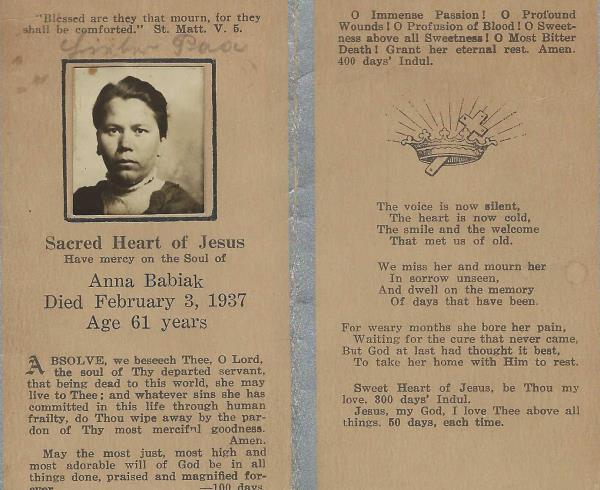 "Blessed are they that mourn, for they
shall be comforted." St. Matt. V. 5.
Sacred Heart of Jesus
Have mercy on the Soul of
Anna Babiak
Died February 3, 1937
Age 61 years
ABSOLVE, we beseech Thee, O Lord,
the soul of Thy departed servant,
that being dead to this world, she may
live to Thee; and whatever sins she has
committed in this life through human
frailty, do Thou wipe away by the par-
don of Thy most merciful goodness.
Amen.
May the most just, most high and
most adorable will of God be in all
things done, praised and magnified for-
ever. —100 days
O Immense Passion! O Profound
Wounds! O Profusion of Blood! O Sweet-
ness above all Sweetness! O Most Bitter
Death! Grant her eternal rest. Amen.
400 days' Indul.
The voice is now silent,
The heart is now cold,
The smile and the welcome
That met us of old.
We miss her and mourn her
In sorrow unseen,
And dwell on the memory
Of days that have been.
For weary months she bore her pain,
Waiting for the cure that never came,
But God at last had thought it best,
To take her home with Him to rest.
Sweet Heart of Jesus, be Thou my
love. 300 days' Indul.
Jesus, my God, I love Thee above all
things. 50 days, each time.